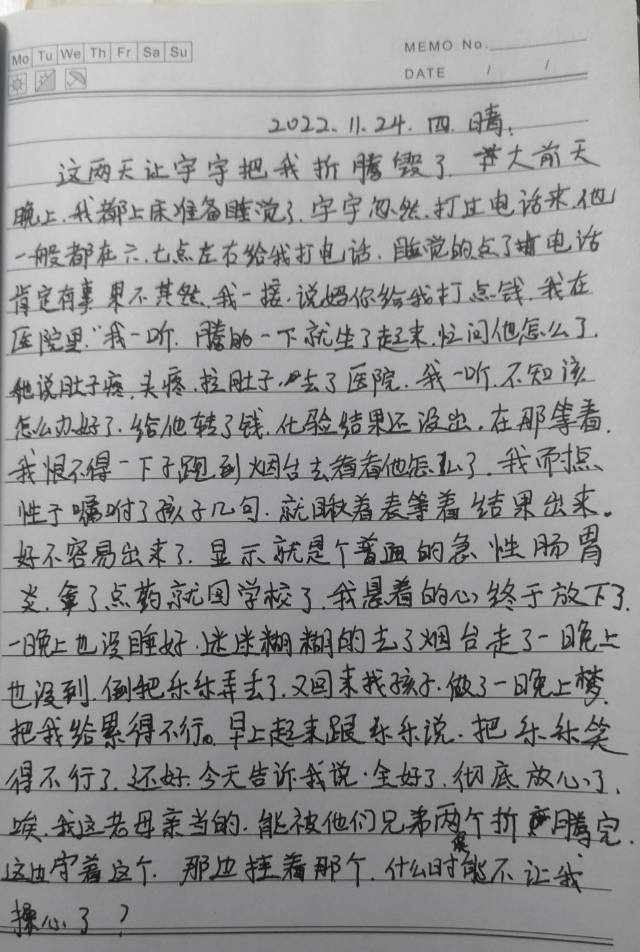 Mo Tu We Th Fr Sa Su
MEMO No.
DATE / /
2022.11.24.四.晴.
这两天让宇宇把我折腾毁了.大前天
晚上.我都上床准备睡觉了.宇宇忽然.打过电话来.他
一般都在六.七点左右给我打电话.睡觉的点了电话
肯定有事果不其然.我一接.说妈你给我打点钱.我在
医院里."我一听.腾的一下就坐了起来.忙问他怎么了.
他说肚子疼.头疼.拉肚子.去了医院.我一听.不知该
怎么办好了.给他转了钱.化验结果还没出.在那等着.
我恨不得一下子跑到烟台去看看他怎么了.我耐点
性子嘱咐了孩子几句.就瞅着表等着结果出来。
好不容易出来了.显示就是个普通的急性肠胃
炎.拿了点药就回学校了.我悬着的心终于放下了.
一晚上也没睡好.迷迷糊糊的去了烟台走了一晚上
也没到.倒把乐乐弄丢了.又回来找孩子.做了一晚上梦.
把我给累得不行。早上起来跟乐乐说.把乐乐笑
得不行了.还好.今天告诉我说.全好了.彻底放心了.
唉.我这老母亲当的.能被他们兄弟两个折腾完.
这边守着这个.那边挂着那个.什么时候能不让我
操心了?